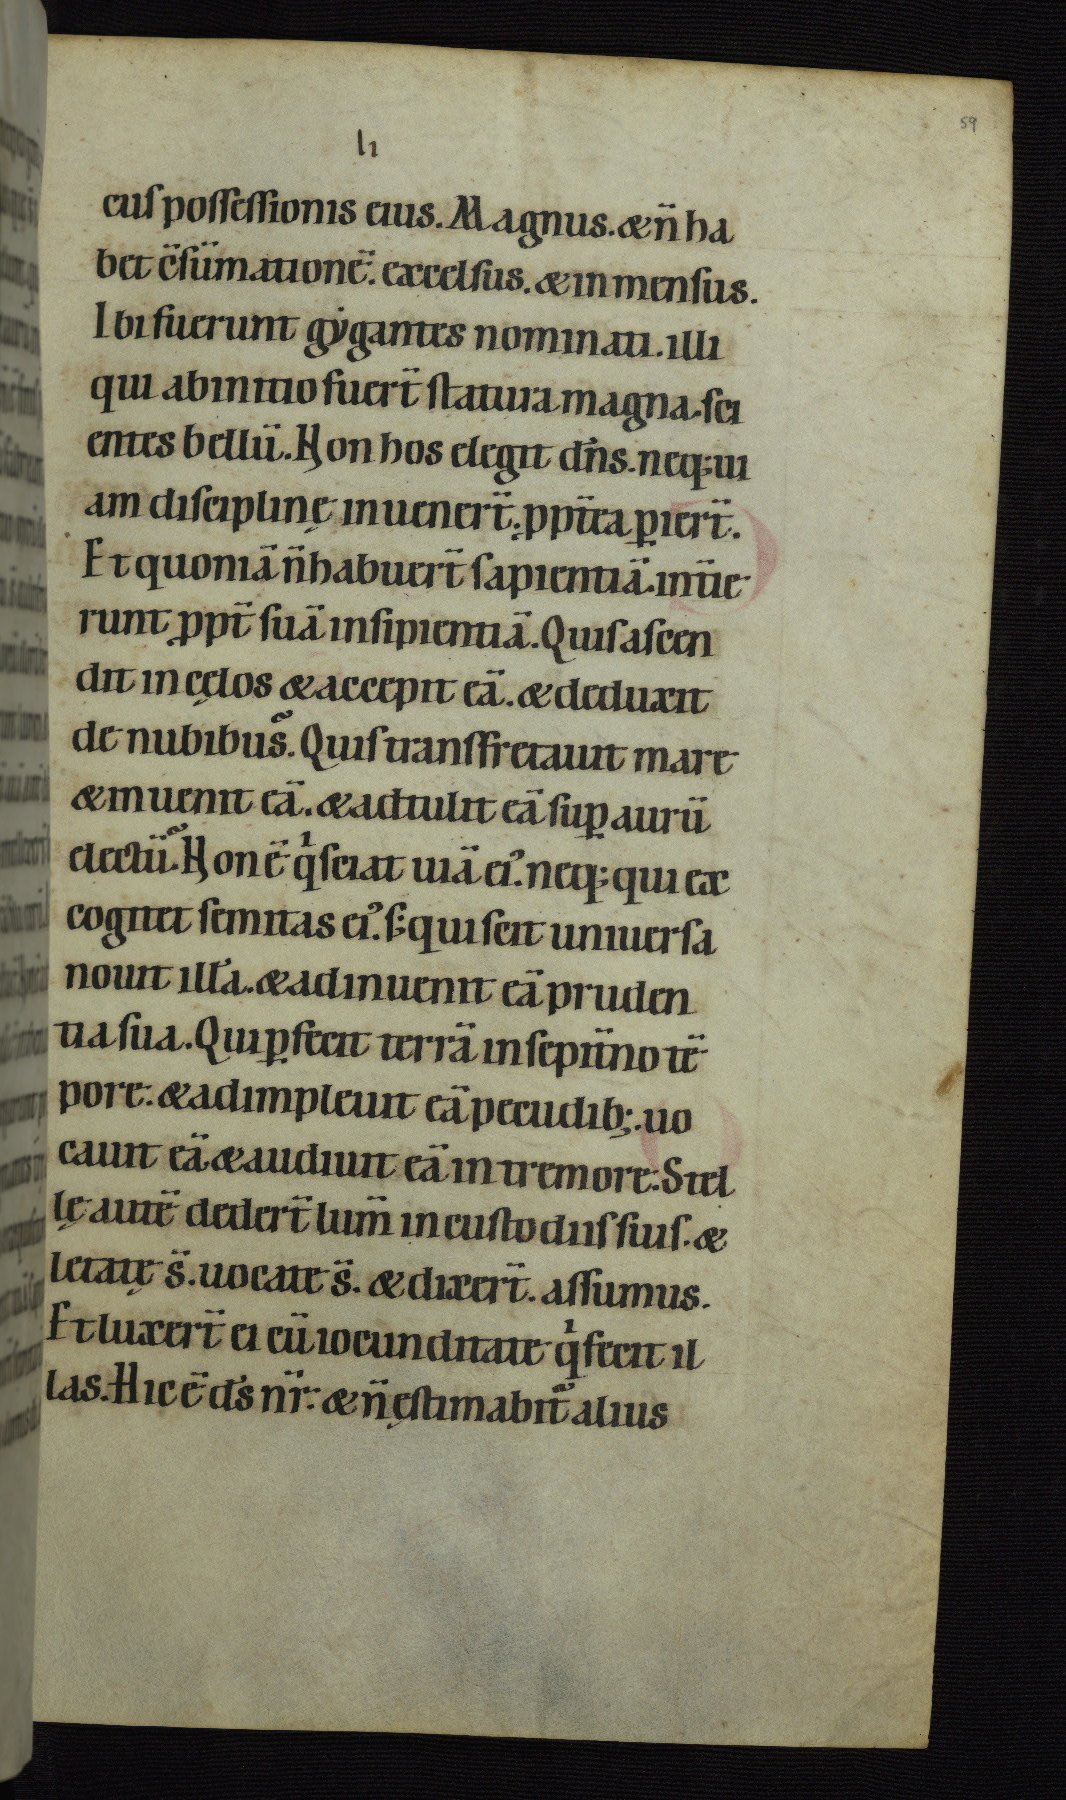 59
lı
cus possessionis eius. Magnus. & n̄ ha
bet c̄sūmationē. excelsus. & inmensus.
Ibi fuerunt gẏgantes nominati. illi
qui ab initio fuer̄t statura magna. sci
entes bellū. Non hos elegit dn̄s. neq; ui
am disciplinę inuener̄t. ꝓpt̄ea ꝑier̄t.
Et quoniā n̄ habuer̄t sapientiā. int̄ie
runt ꝓpt̄ suā insipientiā. Quis ascen
dit in cęlos & accepit eā. & deduxit
de nubibus. Quis transfretauit mare
& inuenit eā. & adtulit eā suꝑ aurū
electū. Non ē q̍ sciat uiā ei᾽. neq; qui ex
cogitet semitas ei᾽. s; qui scit uniuersa
nouit illa. & adinuenit eā pruden
tia sua. Qui ꝑfecit terrā in sept̄no tē
pore. & adimpleuit eā pecudib;. uo
cauit eā & audiuit eā in tremore. Stel
lę autē deder̄t lum̄ in custodiis suis. &
letatę s̄. uocate s̄. & dixer̄t. assumus.
Et luxer̄t ei cū iocunditate q̍ fecit il
las. Hic ē ds̄ nr̄. & n̄ ęstimabit̄ alius